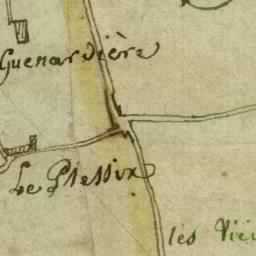 Guenardière
Le Plessix
les Vie